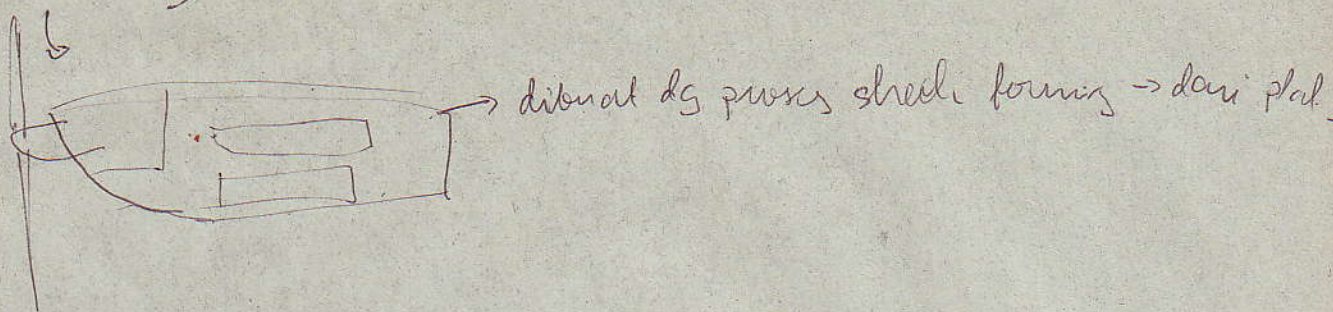 → dibuat dg proses strech forming → dari plat